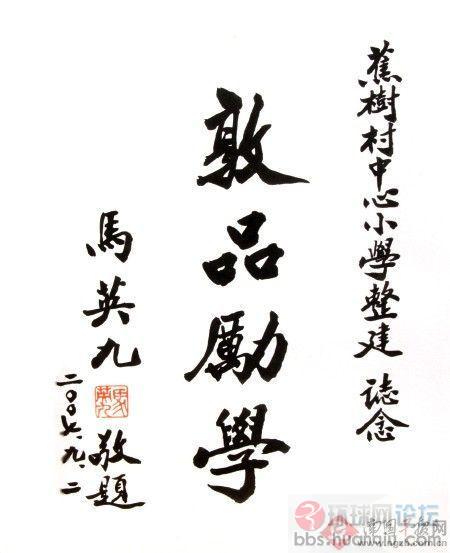 蕉樹村中心小學整建 誌念
敦品勵學
馬英九 敬題
二〇〇七.九.二
环球网论坛
bbs.huanqiu.com